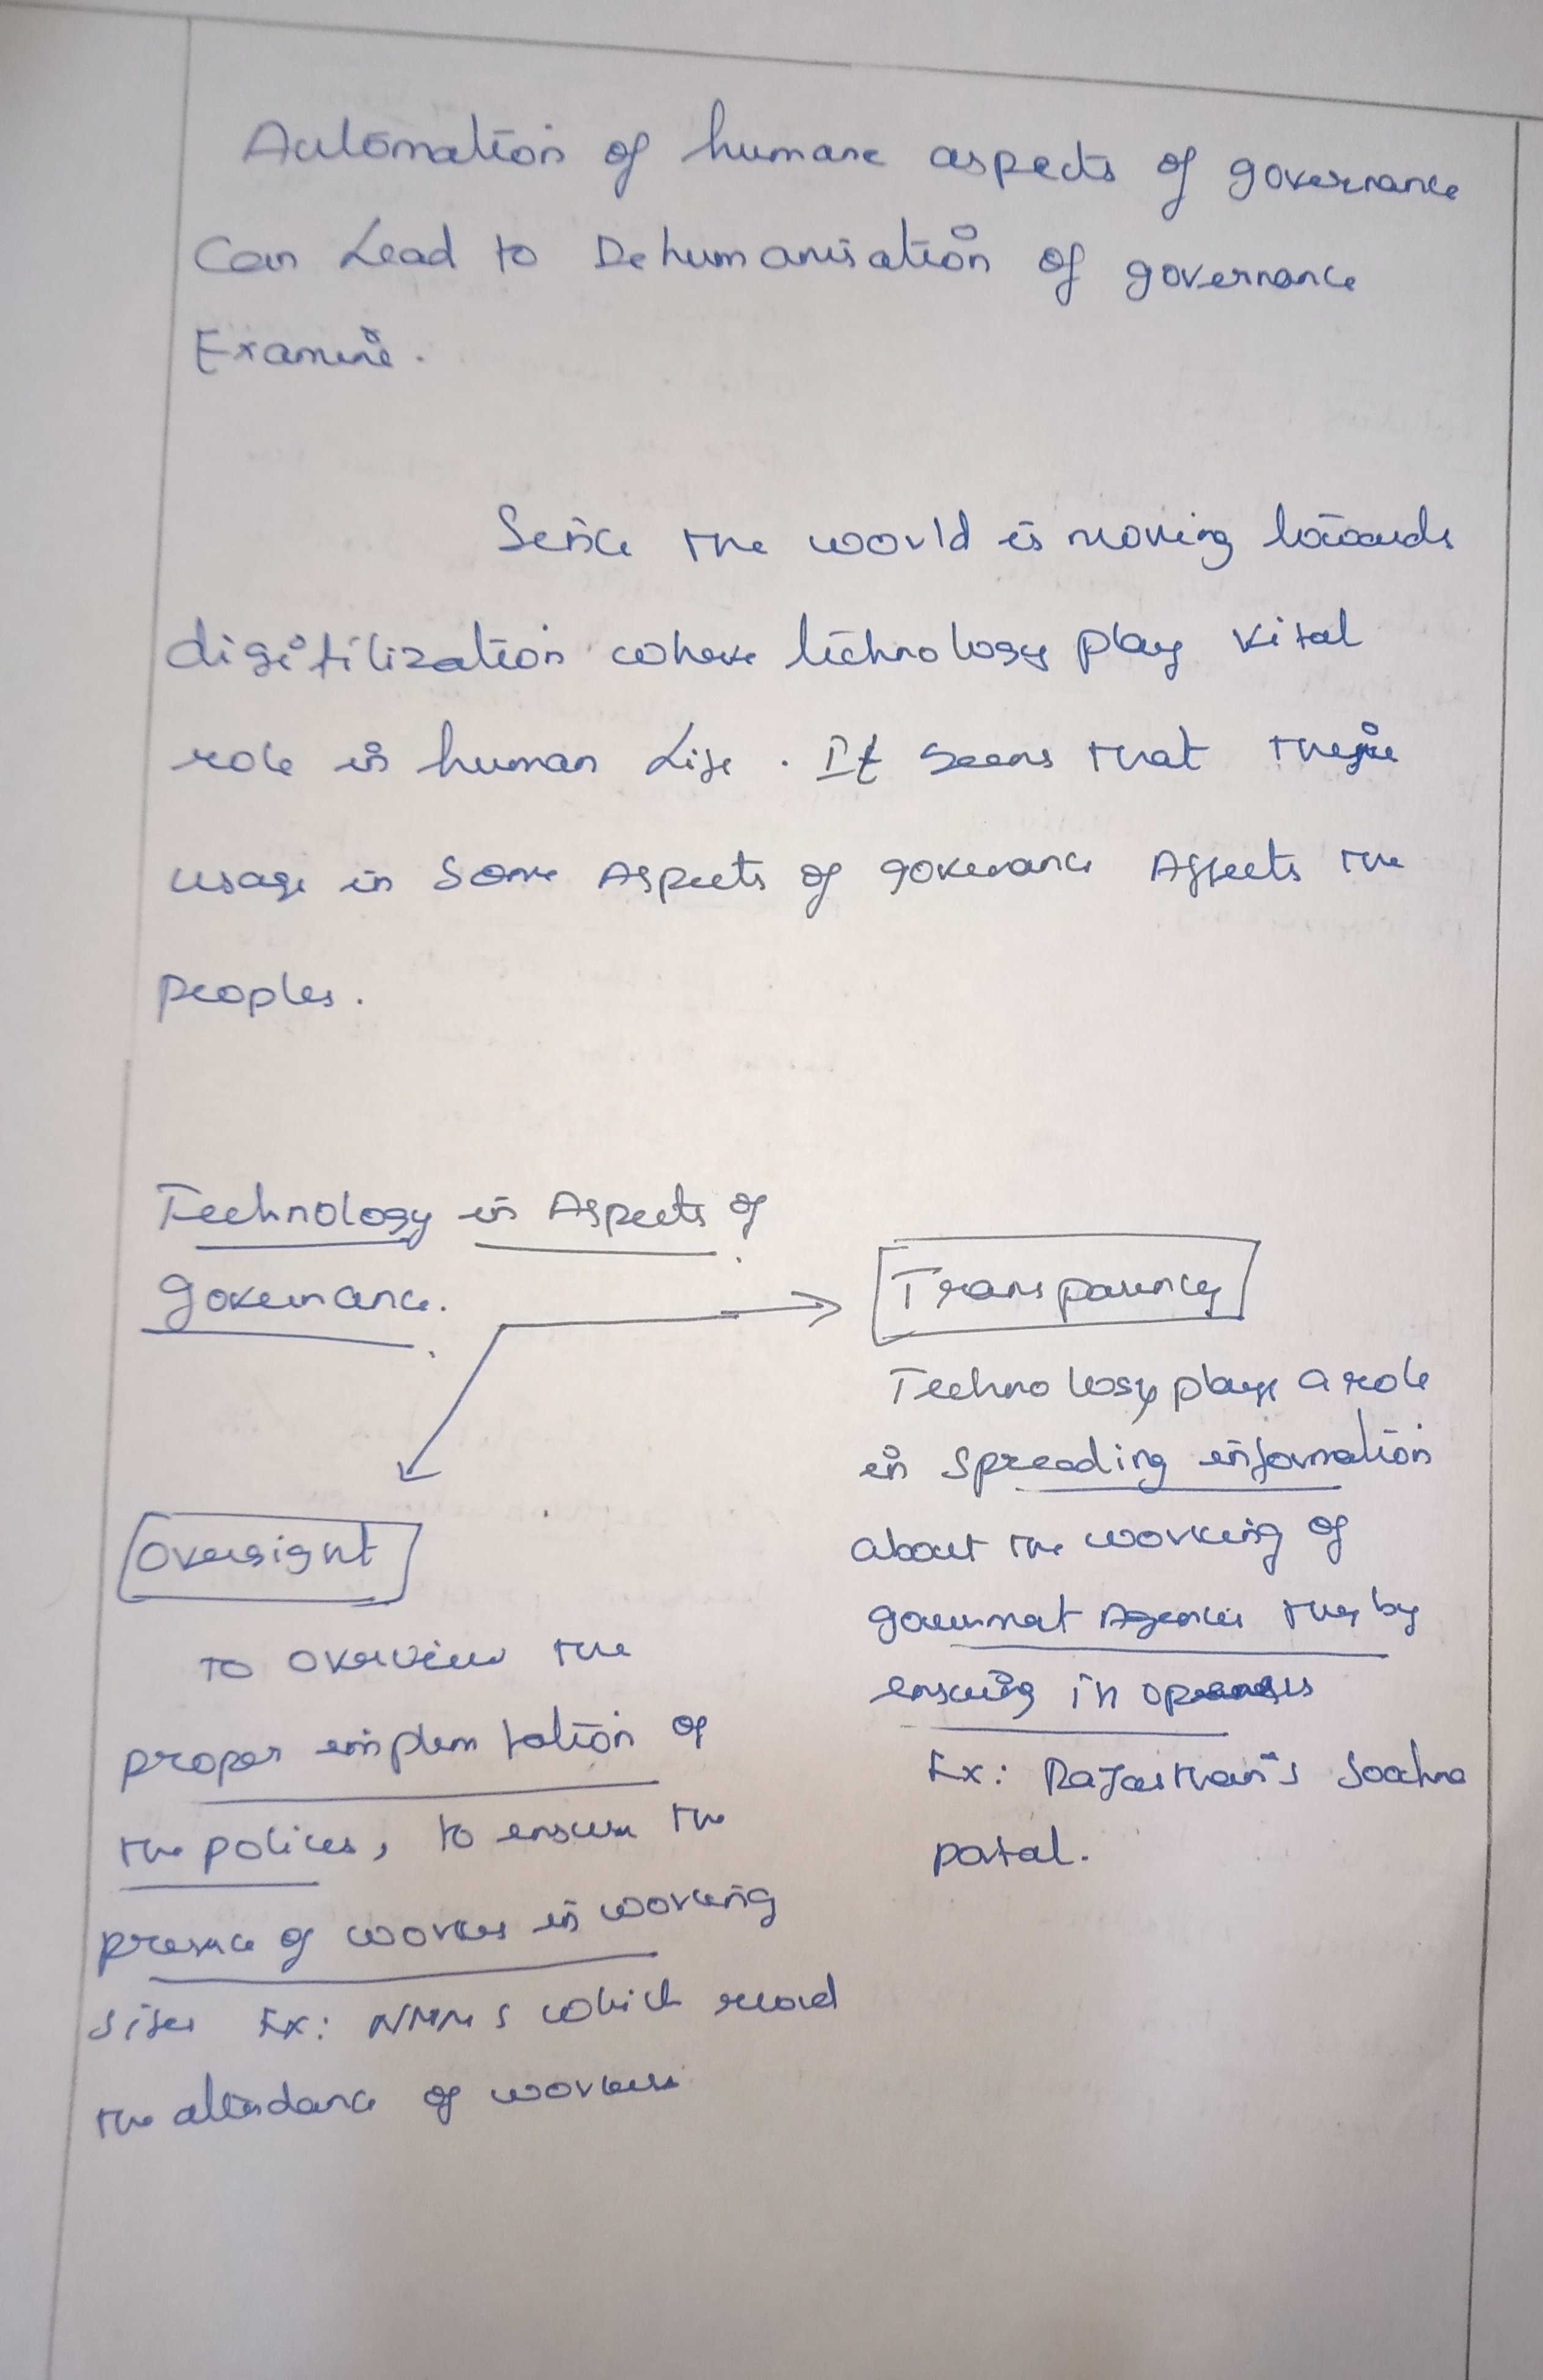 Automation of humane aspects of governance
Can Lead to Dehumanisation of governance
Examine.
Since the woorld is moving towards
digitilization where technology play vital
role in human Life. It seems that
usage in some Aspects of governance Affects the
peoples.
Technology in Aspects of
governance.
Transparency
Technology plays a role
in spreading information
about the working of
government Agencies they by
ensuring in
Ex: Rajasthan's Soochna
portal.
Oversight
To overview the
proper implementation of
the polices, to ensure the
presence of workers in working
sites Ex: NMMS which record
the attendance of workers